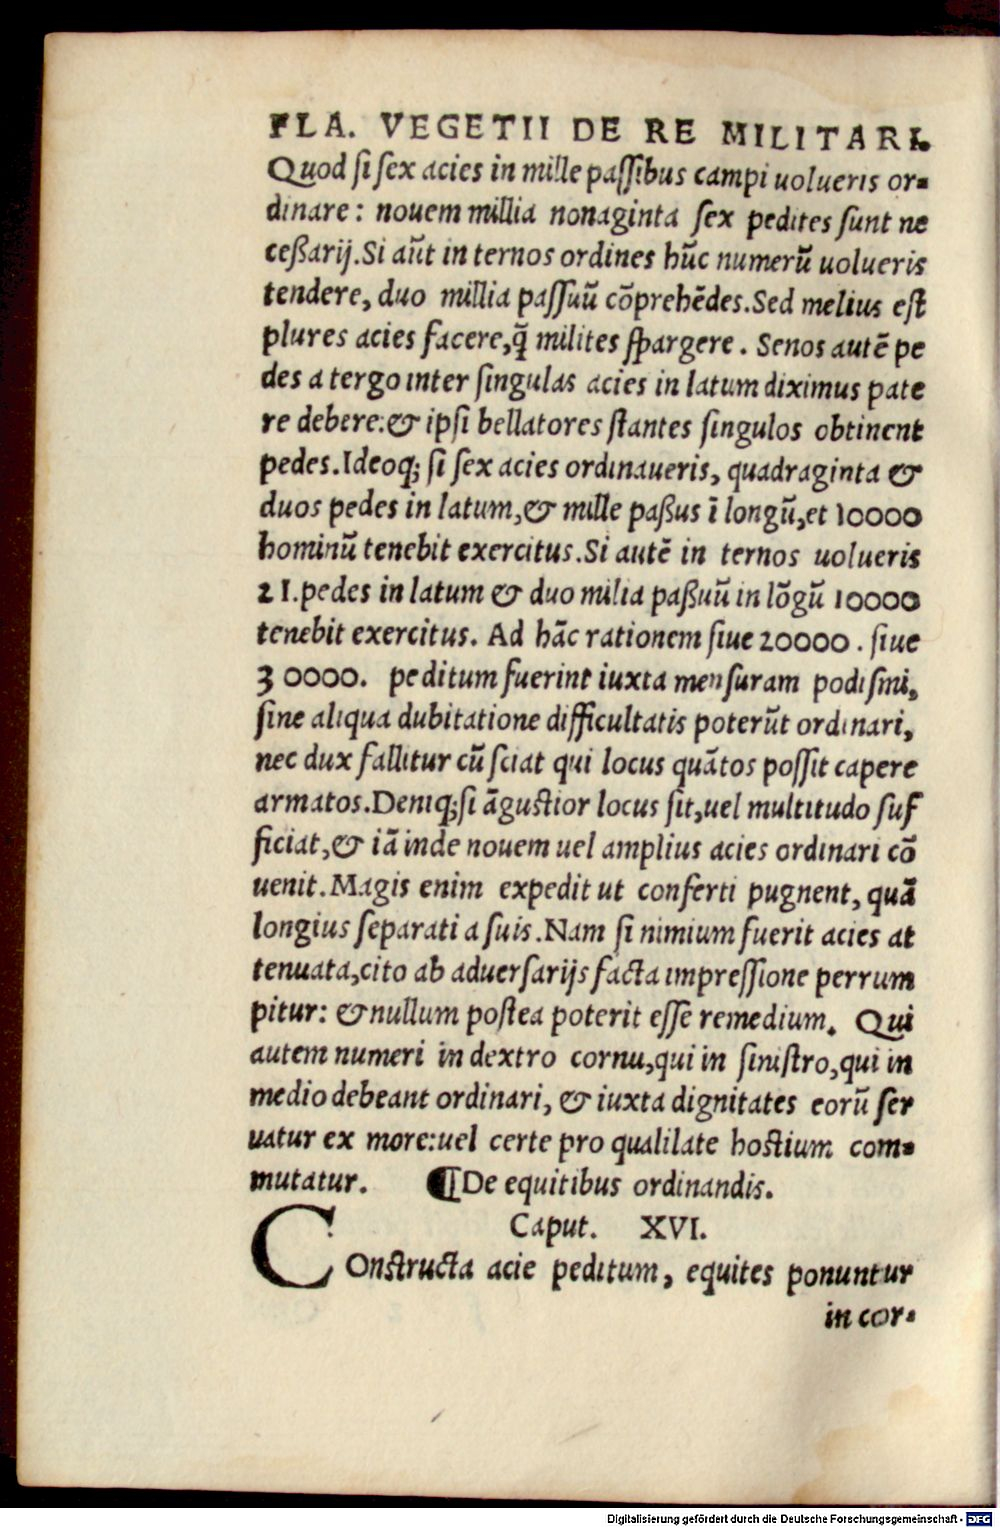 FLA. VEGETII DE RE MILITARI.
Quod si sex acies in mille passibus campi uolueris or-
dinare: nouem millia nonaginta sex pedites sunt ne
ceßarij. Si aūt in ternos ordines hūc numerū uolueris
tendere, duo millia passuū cōprehēdes. Sed melius est
plures acies facere, q̄ milites spargere. Senos autē pe
des a tergo inter singulas acies in latum diximus pate
re debere: & ipsi bellatores stantes singulos obtinent
pedes. Ideoq; si sex acies ordinaueris, quadraginta &
duos pedes in latum, & mille paßus ī longū, et 10000
hominū tenebit exercitus. Si autē in ternos uolueris
21. pedes in latum & duo milia paßuū in lōgū 10000
tenebit exercitus. Ad hāc rationem siue 20000. siue
30000. peditum fuerint iuxta mensuram podismi,
sine aliqua dubitatione difficultatis poterūt ordinari,
nec dux fallitur cū sciat qui locus quātos possit capere
armatos. Deniq; si āgustior locus sit, uel multitudo suf
ficiat, & iā inde nouem uel amplius acies ordinari cō
uenit. Magis enim expedit ut conferti pugnent, quā
longius separati a suis. Nam si nimium fuerit acies at
tenuata, cito ab aduersarijs facta impressione perrum
pitur: & nullum postea poterit esse remedium. Qui
autem numeri in dextro cornu, qui in sinistro, qui in
medio debeant ordinari, & iuxta dignitates eorū ser
uatur ex more: uel certe pro qualilate hostium com-
mutatur. ¶ De equitibus ordinandis.
Caput. XVI.
COnstructa acie peditum, equites ponuntur
in cor-
Digitalisierung gefördert durch die Deutsche Forschungsgemeinschaft - DFG